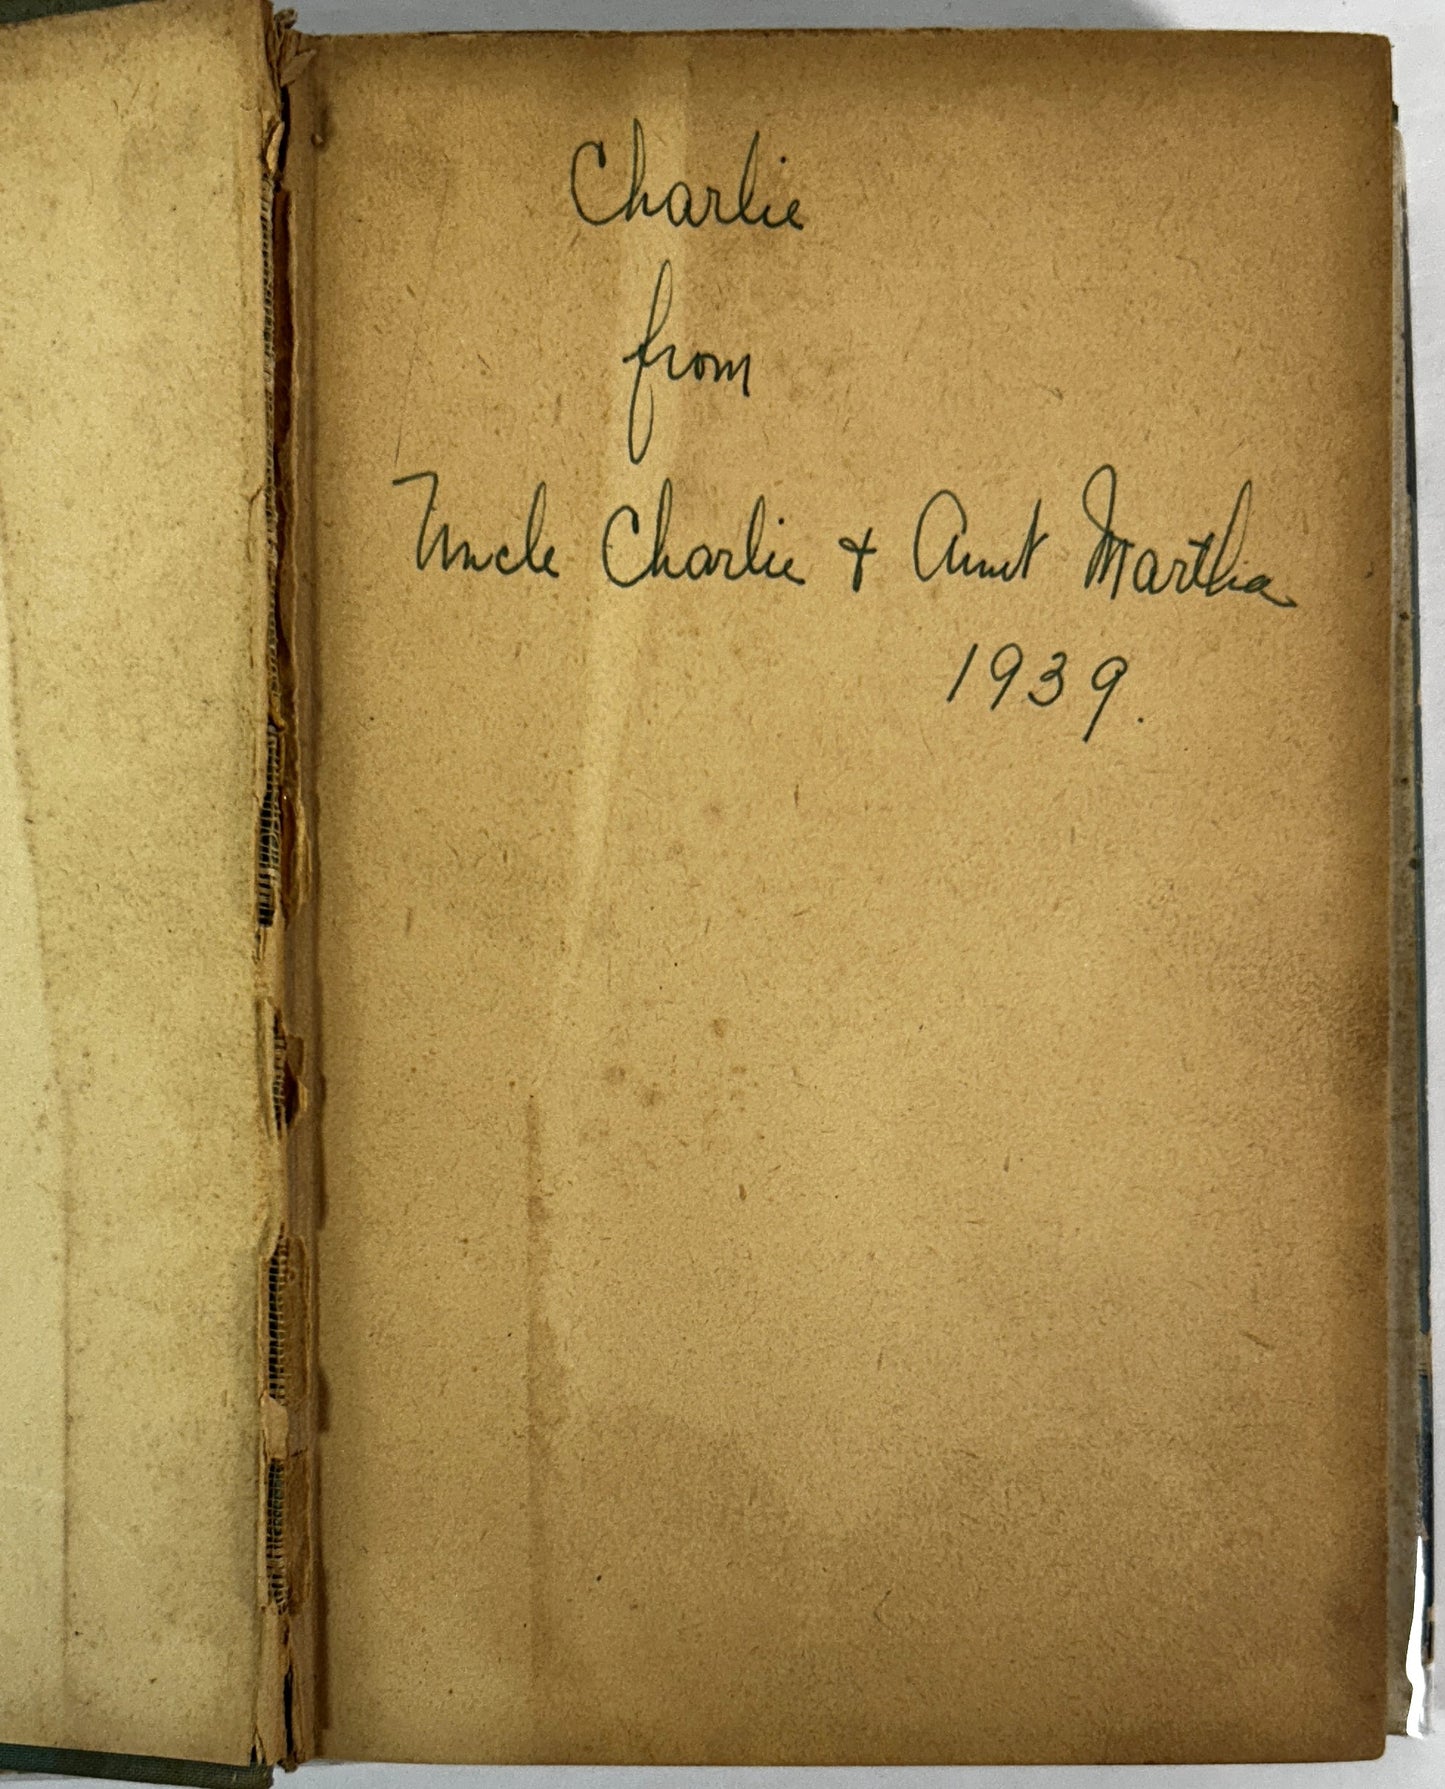 Charlie
from
Uncle Charlie + Aunt Martha
1939.